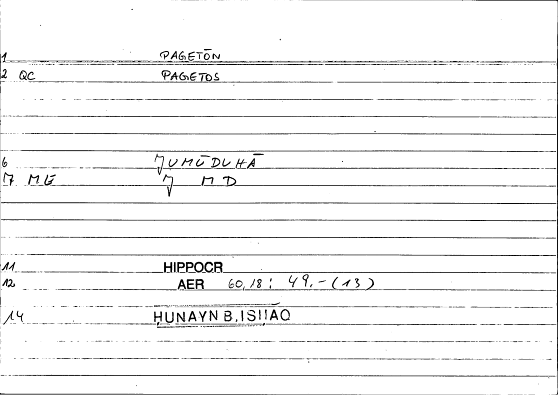 1 PAGETŌN
2 QC PAGETOS
6 ǦUMŪDUHĀ
7 ME Ǧ M D
11 HIPPOCR
12 AER 60,18: 49.-(13)
14 ḤUNAYN B. ISḤAQ